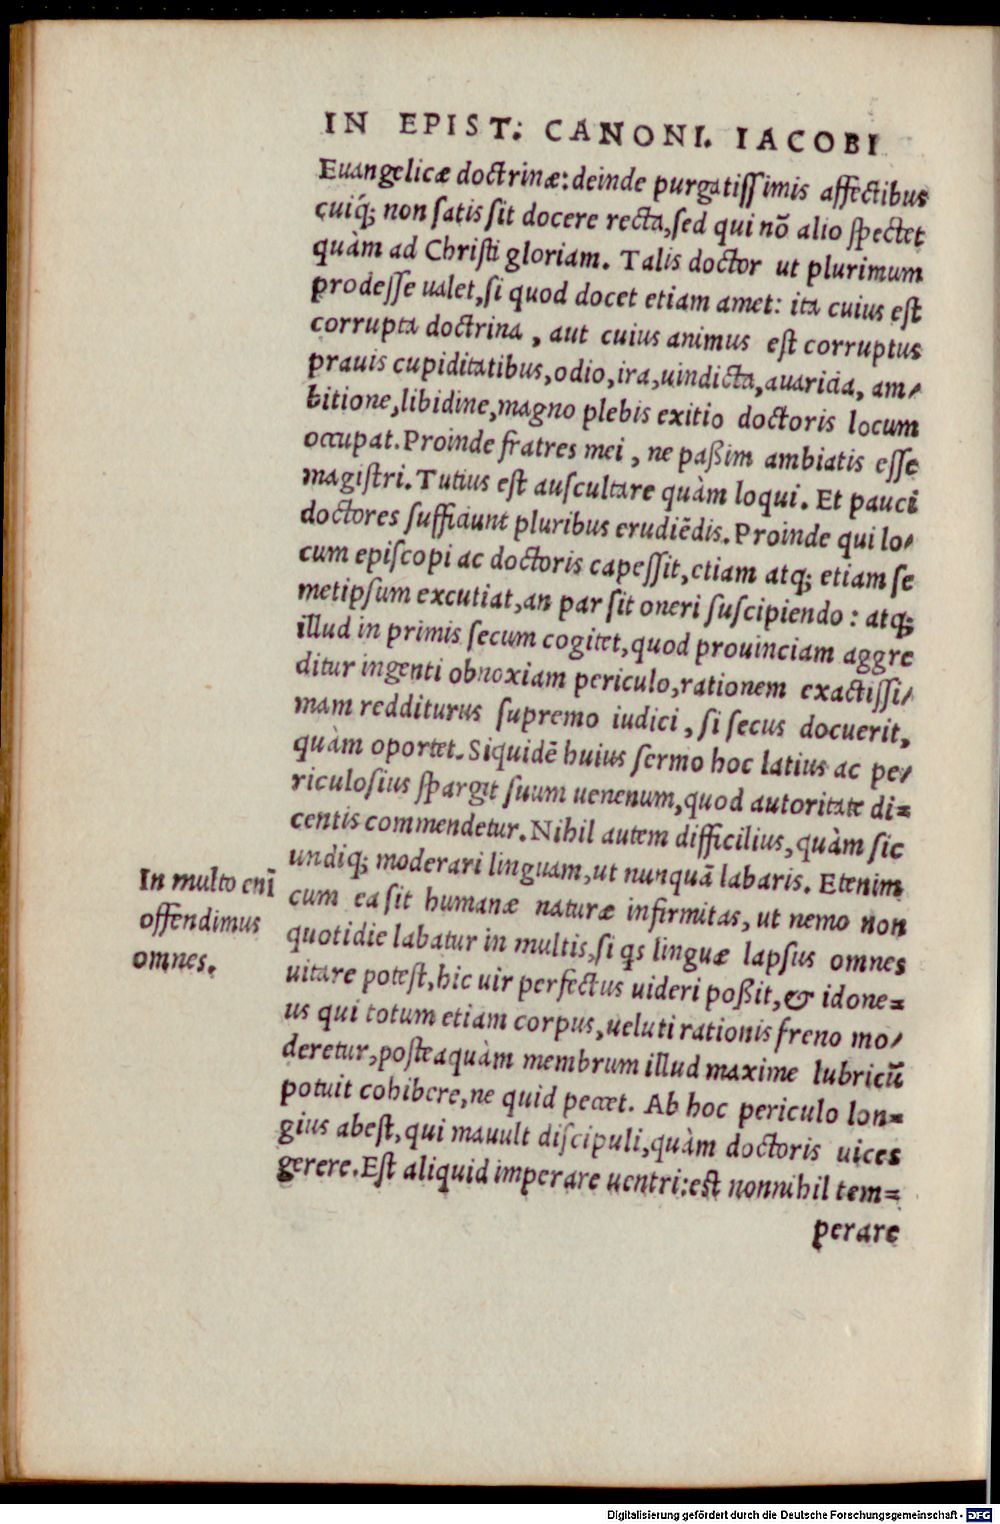 IN EPIST. CANONI. IACOBI
Euangelicæ doctrinæ: deinde purgatissimis affectibus
cuiq́; non satis sit docere recta, sed qui nō alio spectet
quàm ad Christi gloriam. Talis doctor ut plurimum
prodesse ualet, si quod docet etiam amet: ita cuius est
corrupta doctrina, aut cuius animus est corruptus
prauis cupiditatibus, odio, ira, uindicta, auaricia, am-
bitione, libidine, magno plebis exitio doctoris locum
occupat. Proinde fratres mei, ne paßim ambiatis esse
magistri. Tutius est auscultare quàm loqui. Et pauci
doctores sufficiunt pluribus erudiēdis. Proinde qui lo-
cum episcopi ac doctoris capessit, etiam atq; etiam se
metipsum excutiat, an par sit oneri suscipiendo: atq;
illud in primis secum cogitet, quod prouinciam aggre
ditur ingenti obnoxiam periculo, rationem exactissi-
mam redditurus supremo iudici, si secus docuerit,
quàm oportet. Siquidē huius sermo hoc latius ac pe-
riculosius spargit suum uenenum, quod autoritate di=
centis commendetur. Nihil autem difficilius, quàm sic
undiq; moderari linguam, ut nunquā labaris. Etenim
In multo enī
offendimus
omnes.
cum ea sit humanæ naturæ infirmitas, ut nemo non
quotidie labatur in multis, si qs linguæ lapsus omnes
uitare potest, hic uir perfectus uideri poßit, & idone=
us qui totum etiam corpus, ueluti rationis freno mo-
deretur, posteaquàm membrum illud maxime lubricū
potuit cohibere, ne quid peccet. Ab hoc periculo lon=
gius abest, qui mauult discipuli, quàm doctoris uices
gerere. Est aliquid imperare uentri: est nonnihil tem=
perare
Digitalisierung gefördert durch die Deutsche Forschungsgemeinschaft - DFG